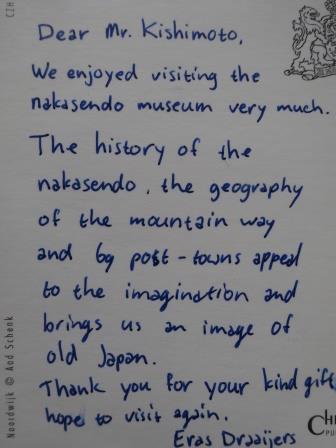 Dear Mr. Kishimoto,
We enjoyed visiting the
nakasendo museum very much.
The history of the
nakasendo, the geography
of the mountain way
and 69 post-towns appeal
to the imagination and
brings us an image of
old Japan.
Thank you for your kind gift,
hope to visit again.
Eras Draaijers
CZH
Noordwijk © Aad Schenk